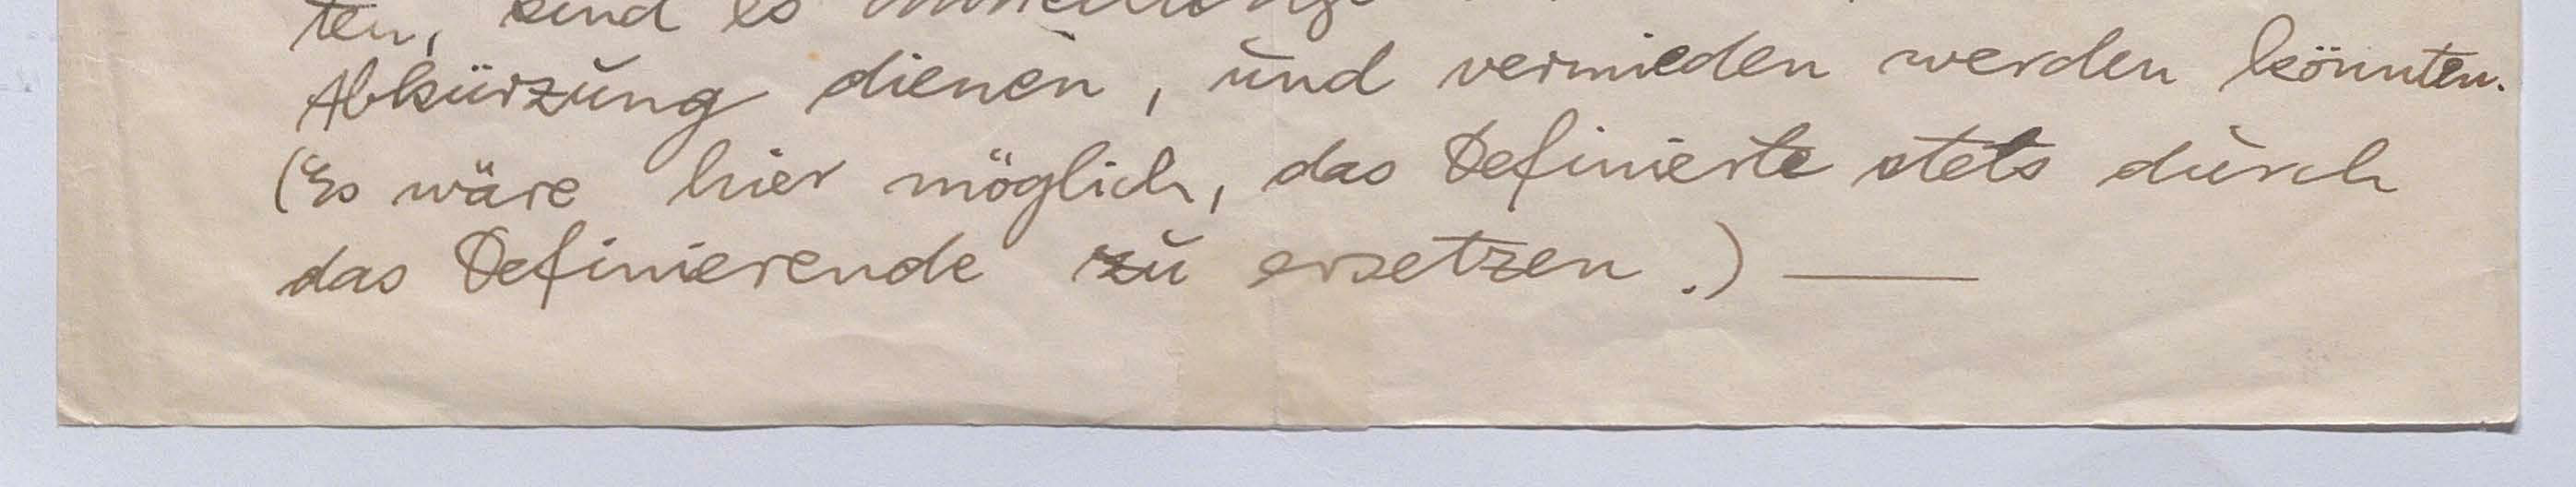 ten, sind es
Abkürzung dienen, und vermieden werden könnten.
(Es wäre hier möglich, das Definierte stets durch
das Definierende zu ersetzen.) —